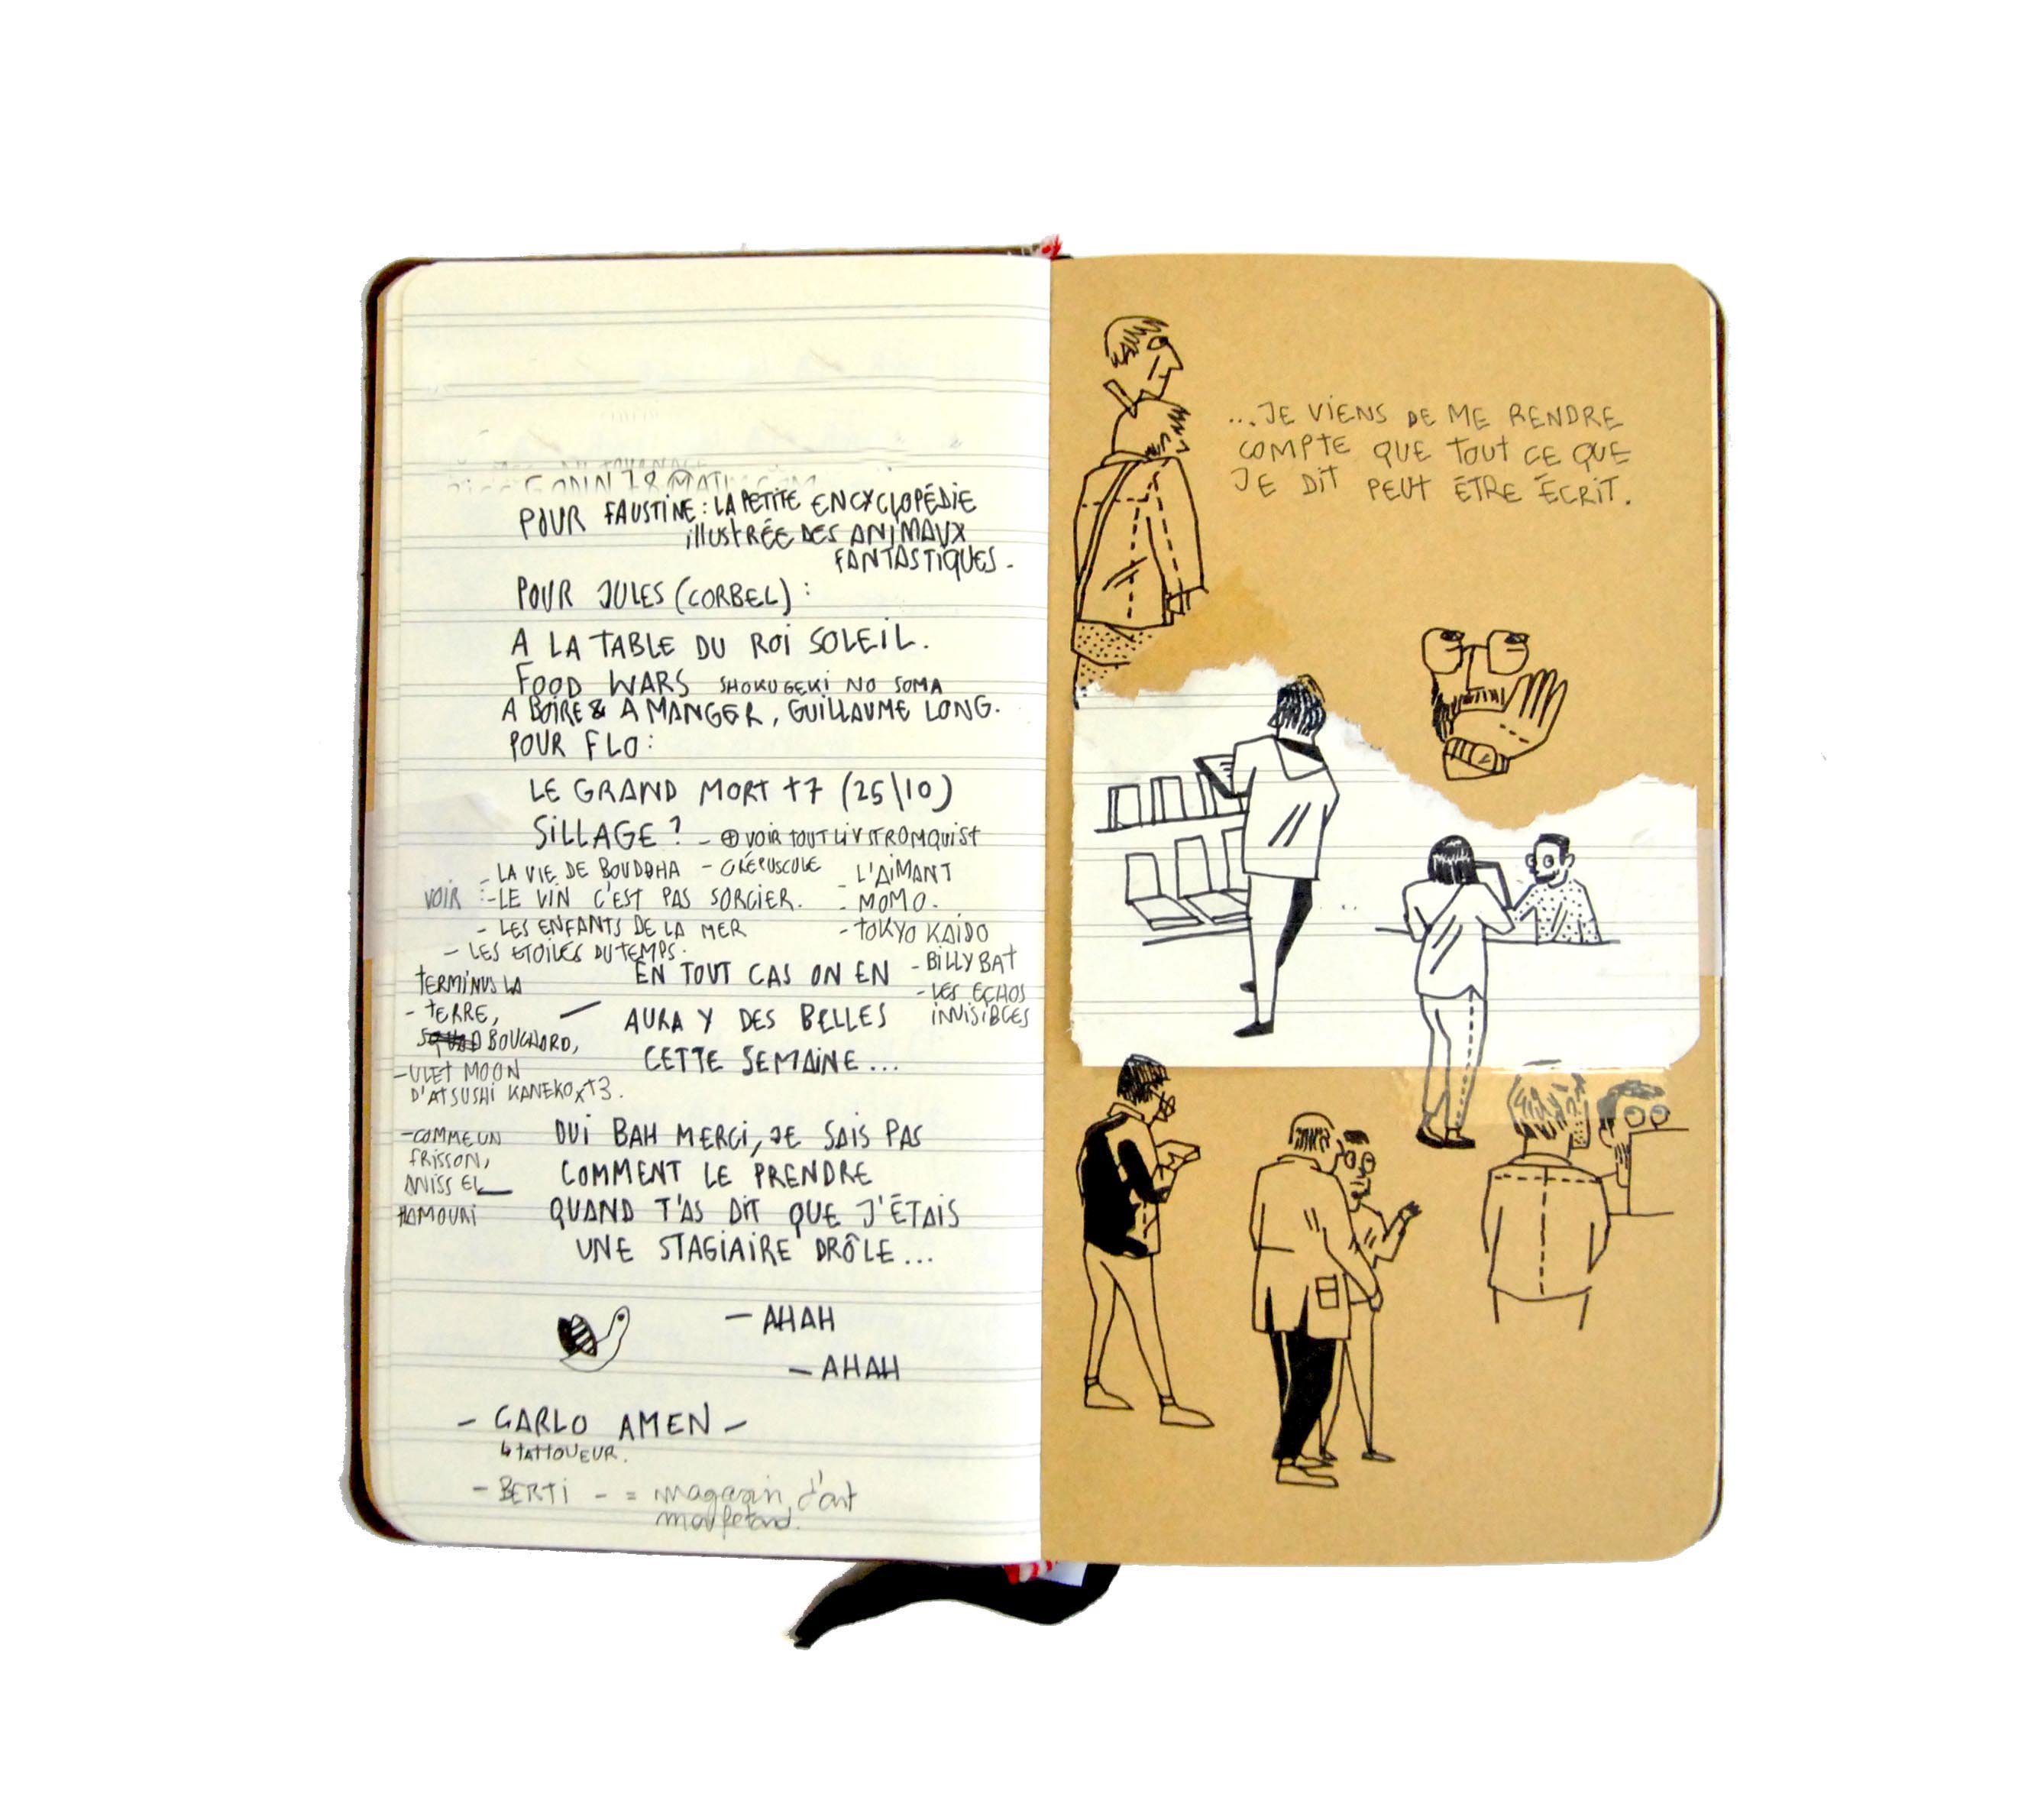 POUR FAUSTINE : LA PETITE ENCYCLOPÉDIE
illUSTRÉE DES ANIMAUX
FANTASTIQUES -
POUR JULES (CORBEL) :
A LA TABLE DU ROI SOLEIL.
FOOD WARS SHOKUGEKI NO SOMA
A BOIRE & A MANGER, GUILLAUME LONG.
POUR FLO :
LE GRAND MORT t7 (25\10)
SILLAGE ? - ⊕ VOIR TOUT LIV STROMQUIST
VOIR :
- LA VIE DE BOUDDHA
- LE VIN C'EST PAS SORCIER.
- LES ENFANTS DE LA MER
- LES ETOILES DU TEMPS.
- CRÉPUSCULE
- L'AIMANT
- MOMO.
- TOKYO KAIDO
- BILLY BAT
- LES ECHOS
INVISIBLES
TERMINUS LA
- TERRE,
BOUCHARD,
- MOON
D'ATSUSHI KANEKO x t3.
- COMME UN
FRISSON,
ANISS EL
HAMOURI
EN TOUT CAS ON EN
AURA Y DES BELLES
CETTE SEMAINE...
OUI BAH MERCI, JE SAIS PAS
COMMENT LE PRENDRE
QUAND T'AS DIT QUE J'ÉTAIS
UNE STAGIAIRE DRÔLE...
- AHAH
- AHAH
- CARLO AMEN -
↳ TATTOUEUR.
- BERTI - = magasin d'art
...JE VIENS DE ME RENDRE
COMPTE QUE TOUT CE QUE
JE DIT PEUT ÊTRE ÉCRIT.